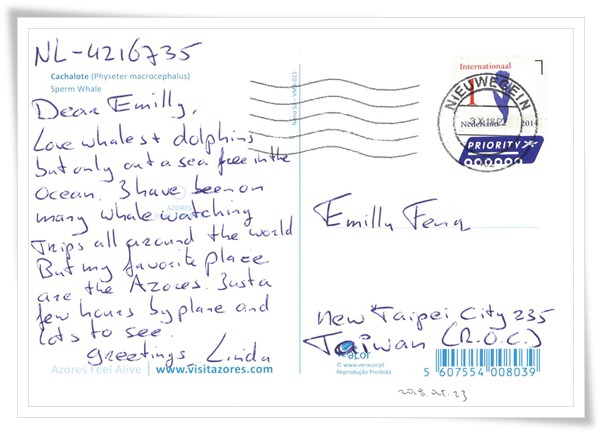 NL-4216735
Cachalote (Physeter macrocephalus)
Sperm Whale
Dear Emilly,
Love whales + dolphins
but only out a sea free in the
Ocean. I have been on
many whale watching
Trips all around the world
But my favorite place
are the Azores. Just a
few hours by plane and
lots to see.
Greetings Linda
Azores Feel Alive www.visitazores.com
AZORES
Internationaal
1
Nederland 2014
NIEUWEGEIN
PRIORITY
Emilly Feng
New Taipei City 235
Taiwan (R.O.C.)
acor
© www.veracor.pt
Reprodução Proibida
5 607554 008039